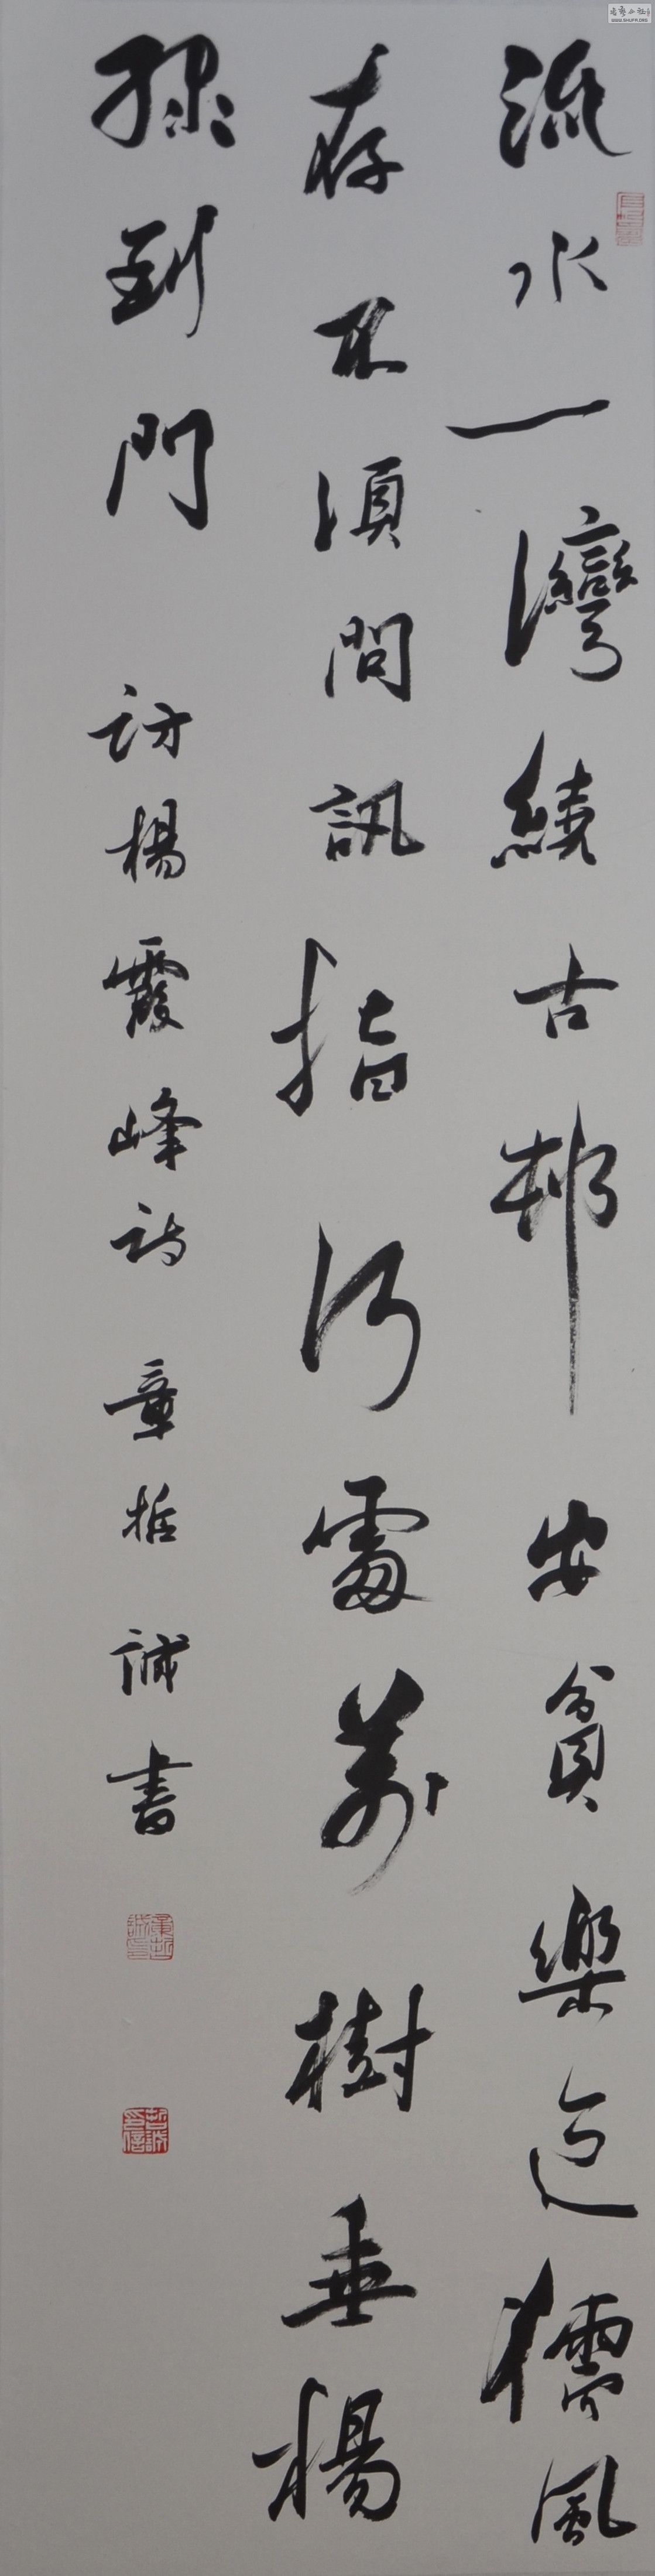 流水一灣繞古邨安貧樂道儒風
存不須問訊指何處萬樹垂楊
綠到門 訪楊霞峰詩 章哲誠書